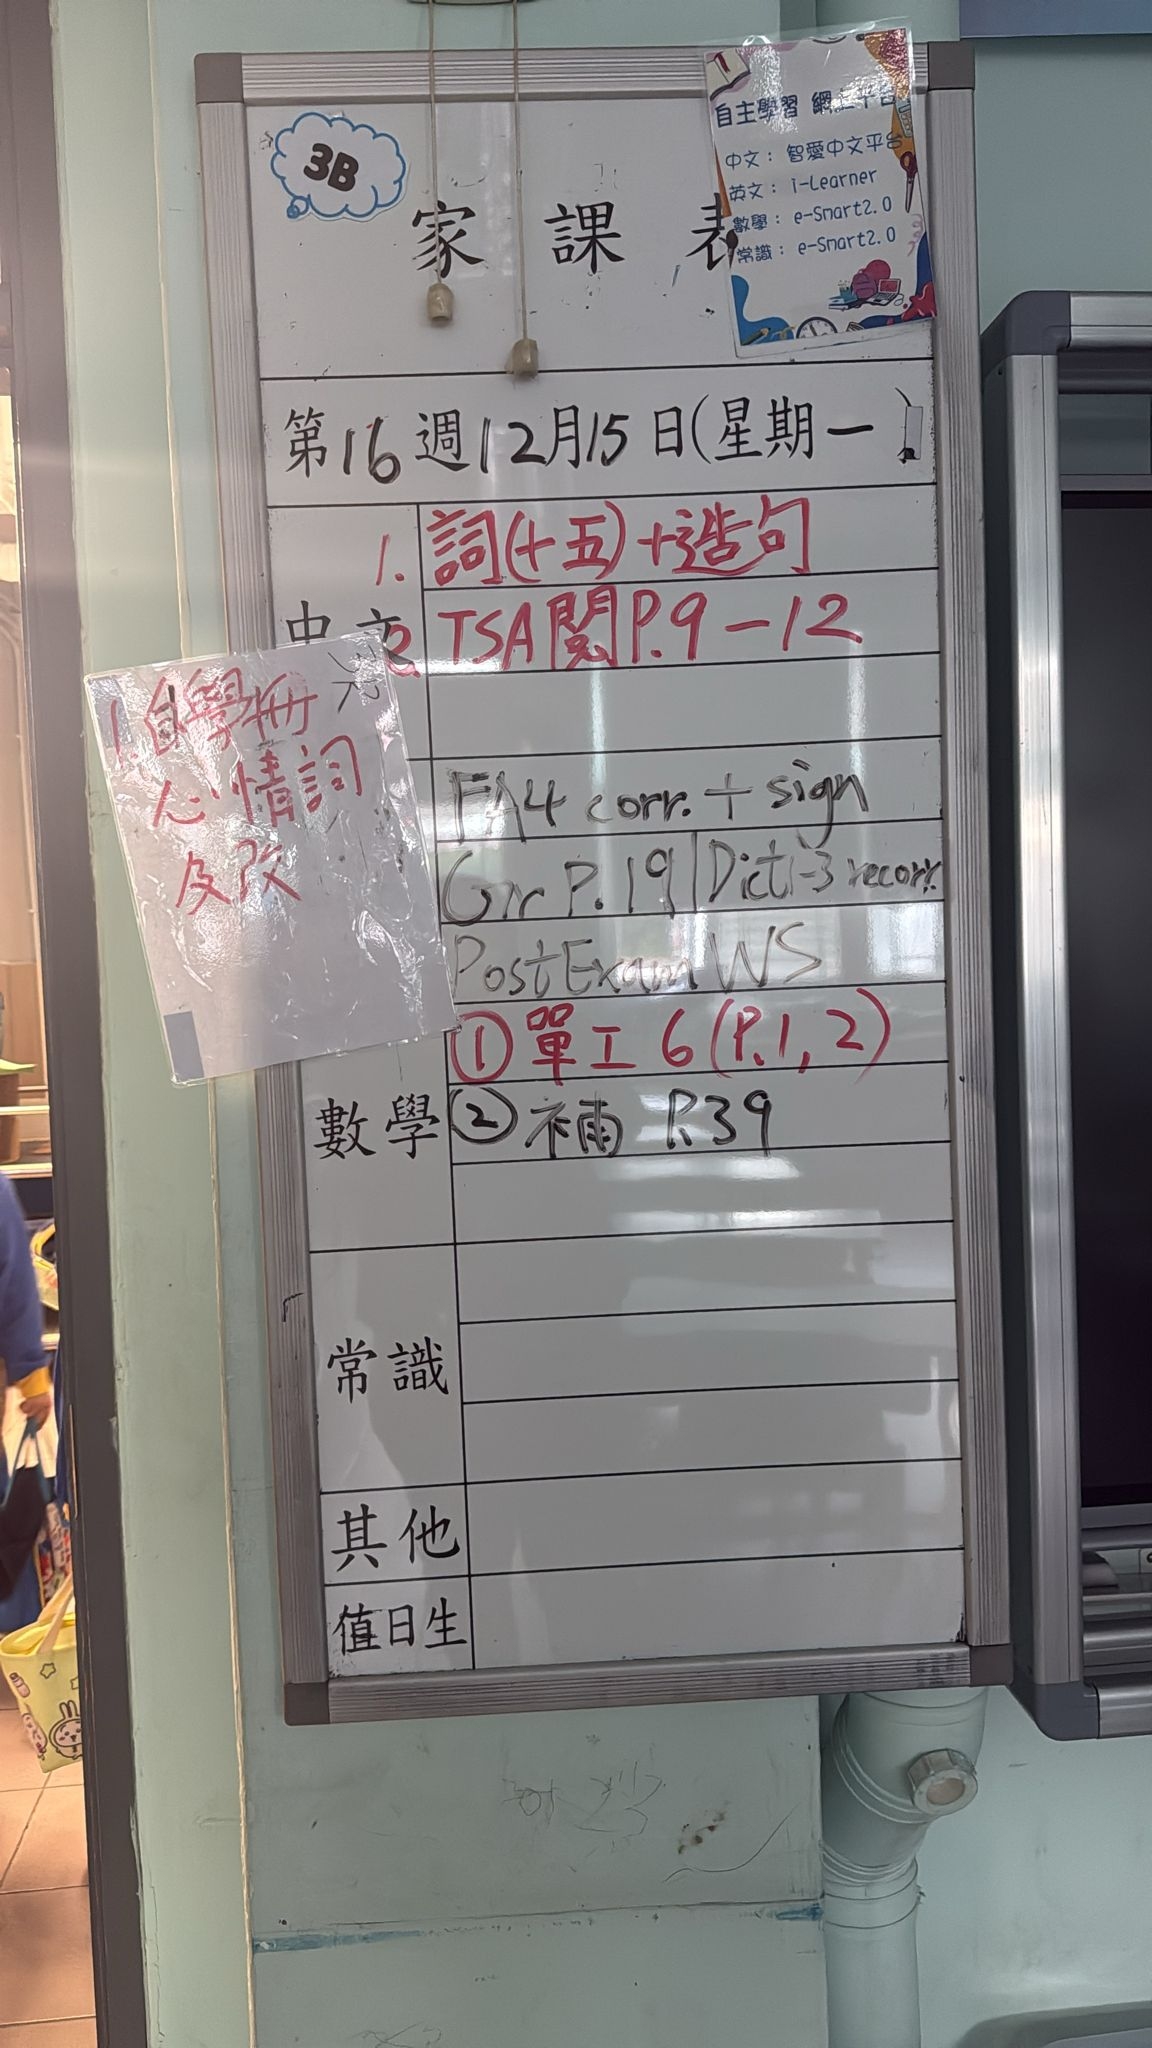 3B
家課表
自主學習 網上平台
中文： 智愛中文平台
英文： i-Learner
數學： e-Smart2.0
常識： e-Smart2.0
第16週12月15日(星期一)
中文
1. 詞(十五)+造句
2. TSA閱P.9-12
1.自學冊
心情詞
及改
FA4 corr. + sign
Gr P.19 | Dict1-3 recorr.
Post Exam WS
數學
① 單工6(P.1,2)
② 補 P.39
常識
其他
值日生